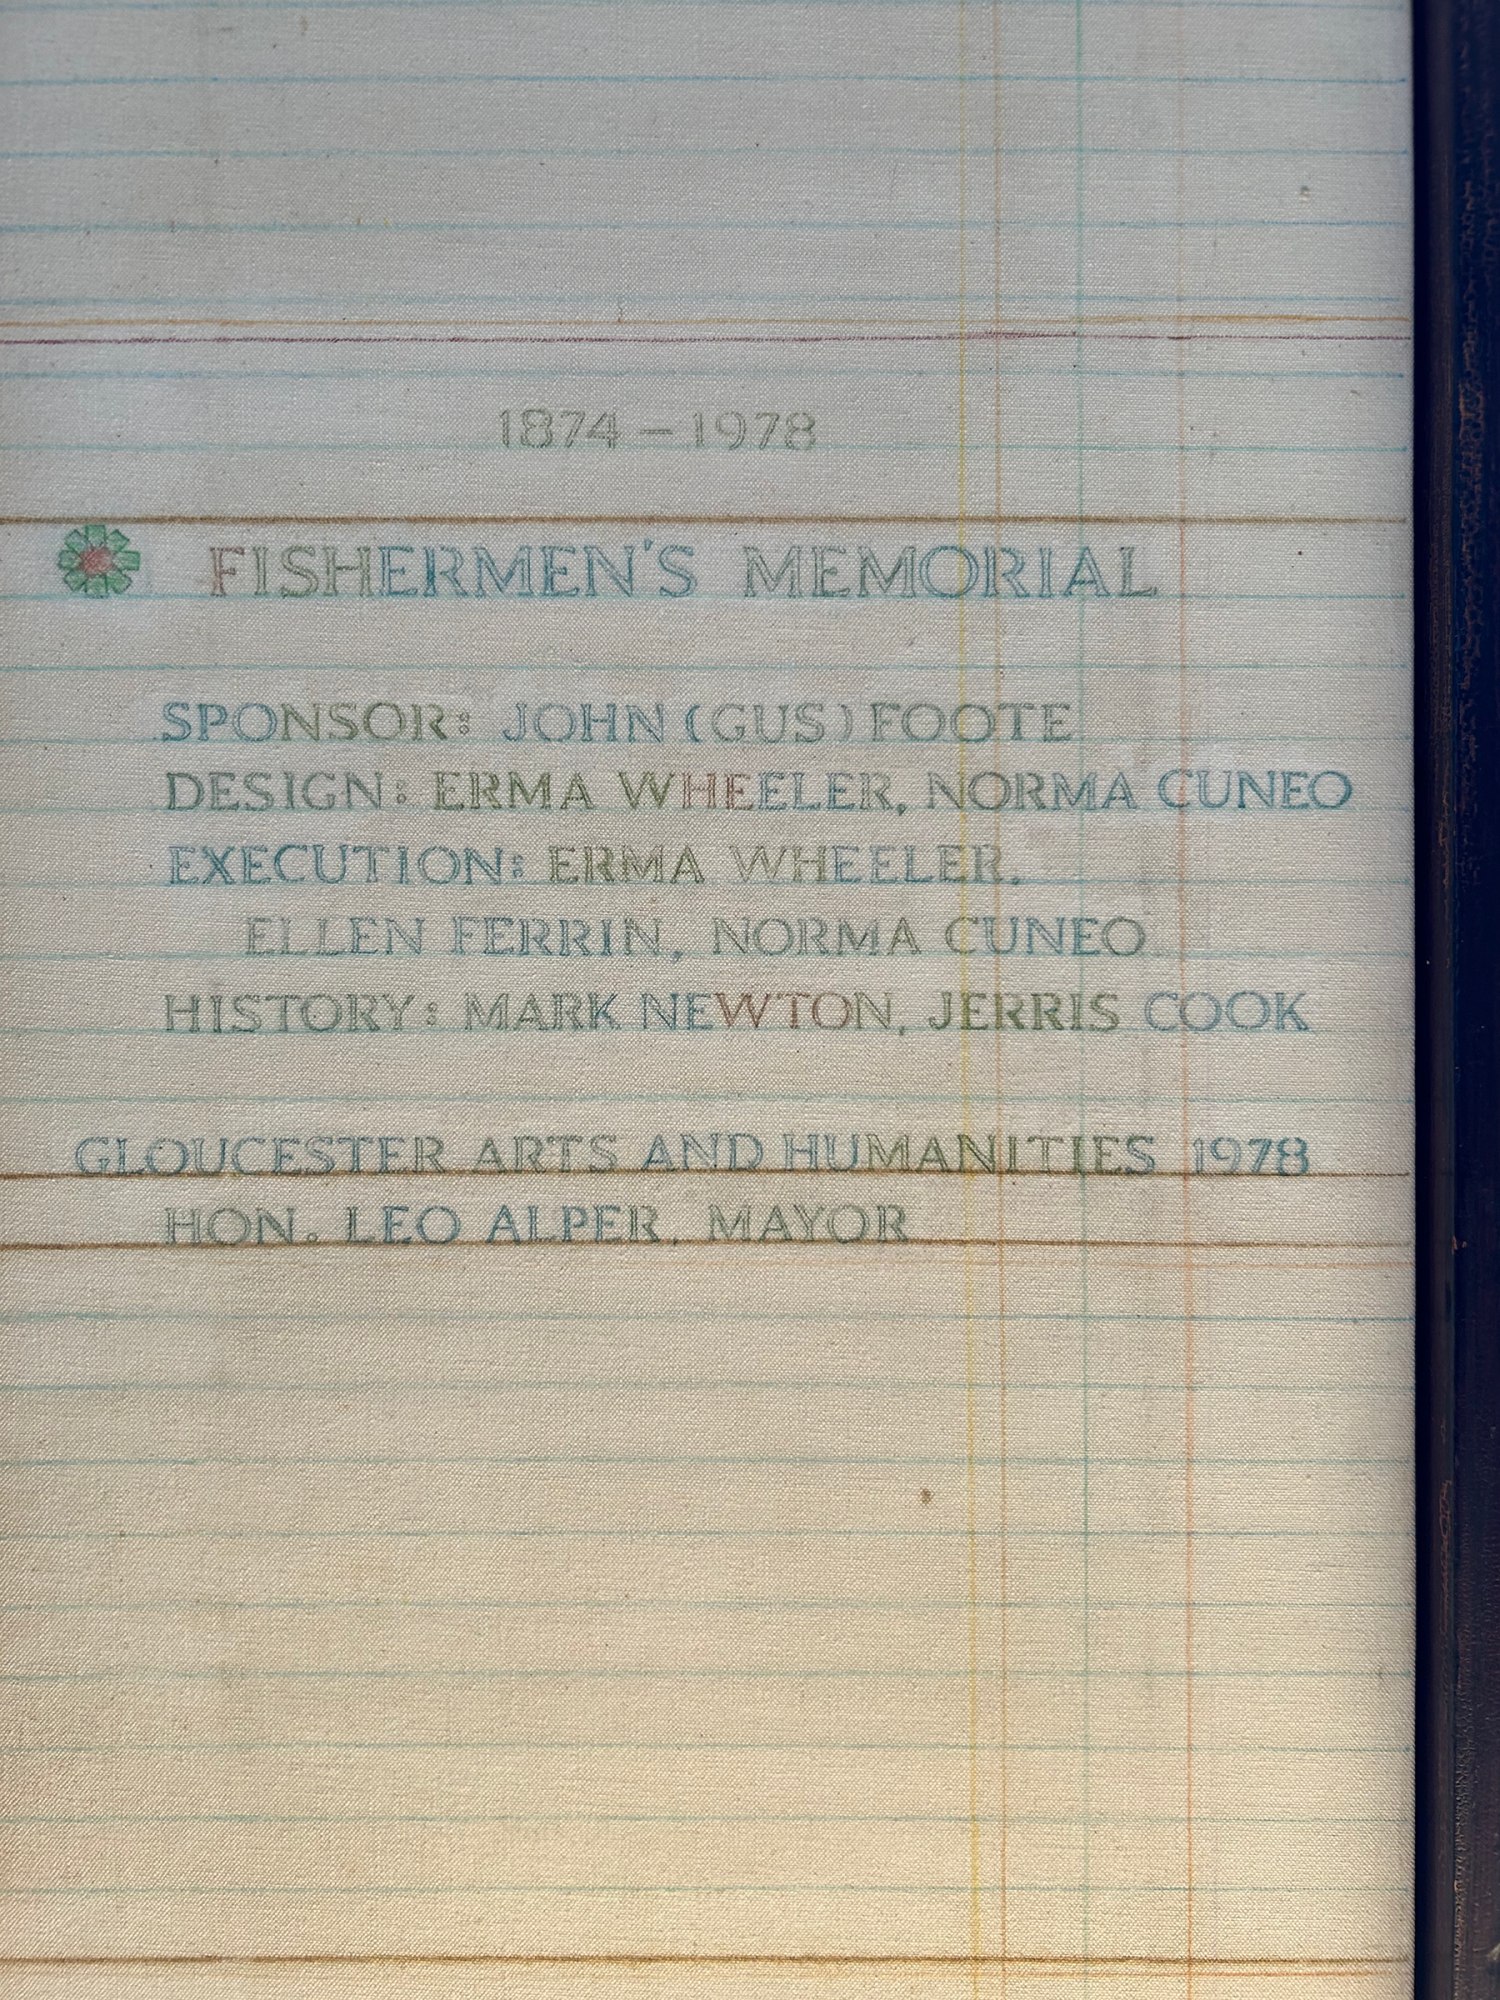 1874 – 1978
FISHERMEN'S MEMORIAL
SPONSOR: JOHN (GUS) FOOTE
DESIGN: ERMA WHEELER, NORMA CUNEO
EXECUTION: ERMA WHEELER,
ELLEN FERRIN, NORMA CUNEO
HISTORY: MARK NEWTON, JERRIS COOK
GLOUCESTER ARTS AND HUMANITIES 1978
HON. LEO ALPER, MAYOR